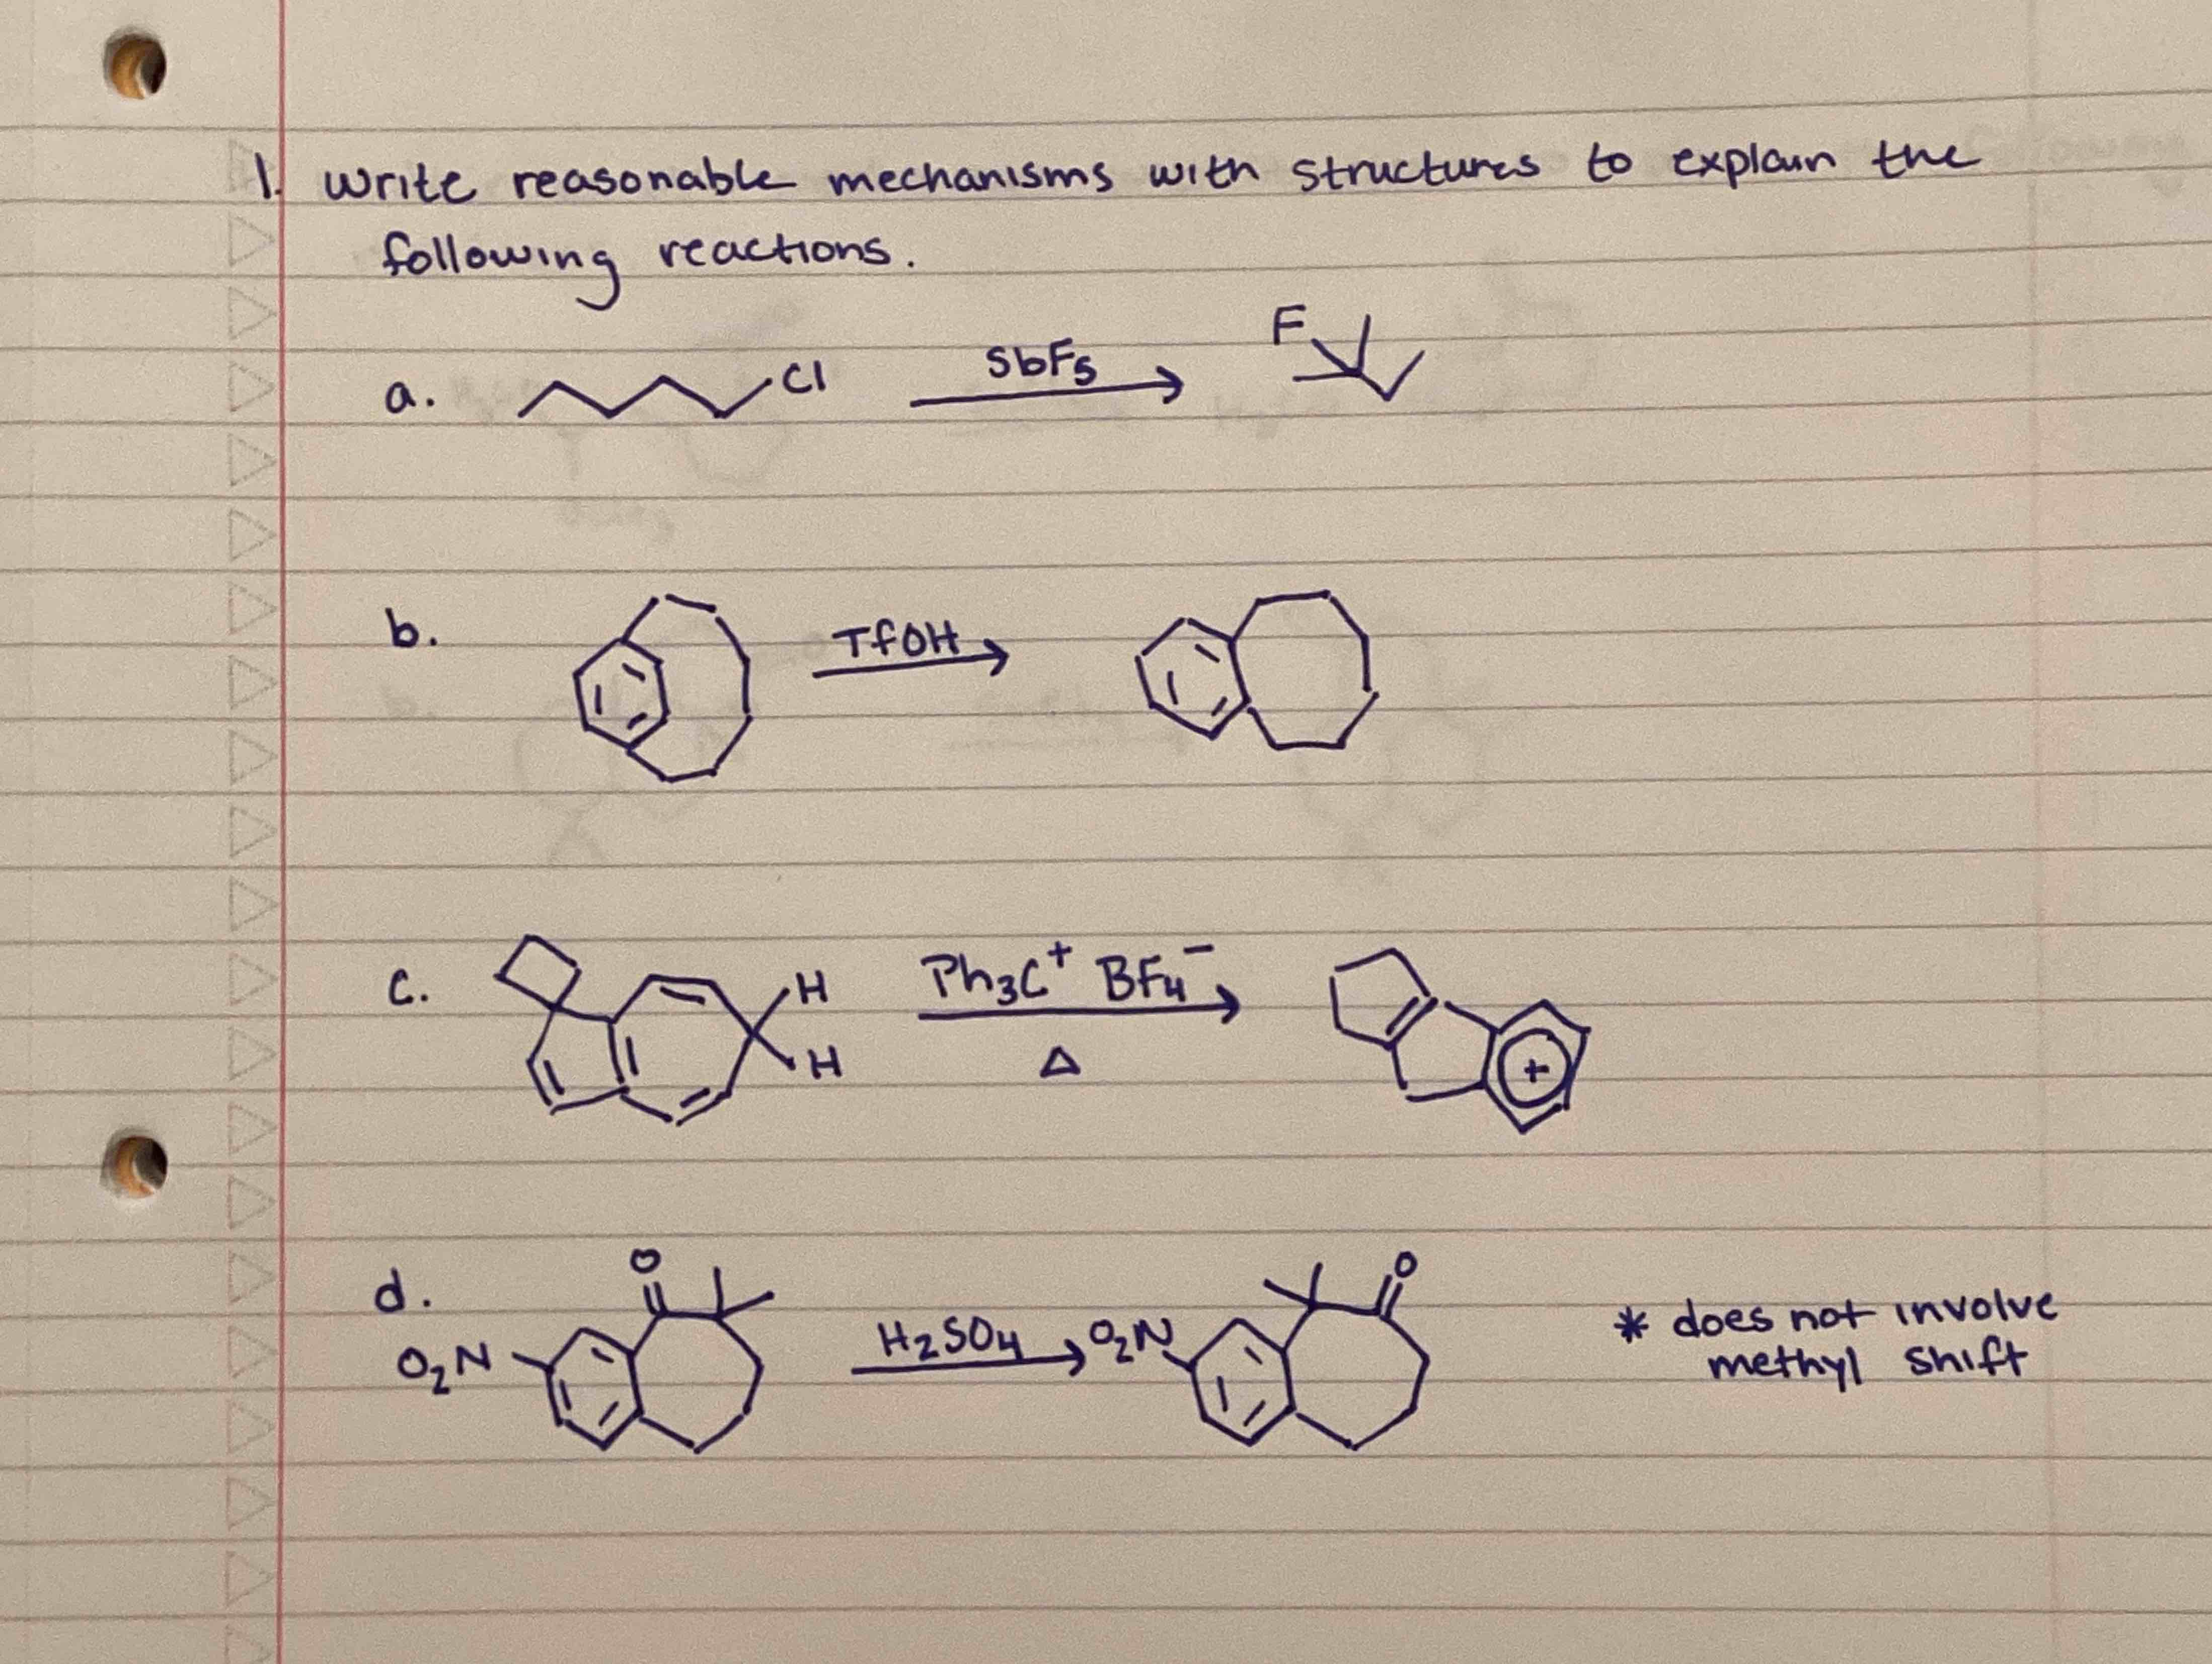 1. Write reasonable mechanisms with structures to explain the
following reactions.
a. Cl SbF5 F
b. TfOH
c. H H Ph3C+ BF4− Δ +
d. O2N O H2SO4 O2N O * does not involve
methyl shift